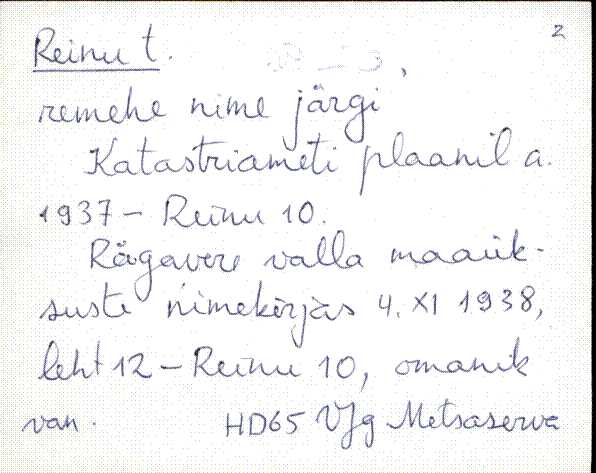 2
Reinu t.
remehe nime järgi
Katastriameti plaanil a.
1937 - Reinu 10.
Rägavere valla maaük-
suste nimekirjas 4. XI 1938,
leht 12 - Reinu 10, omanik
van. HD65 VJg Metsaserva